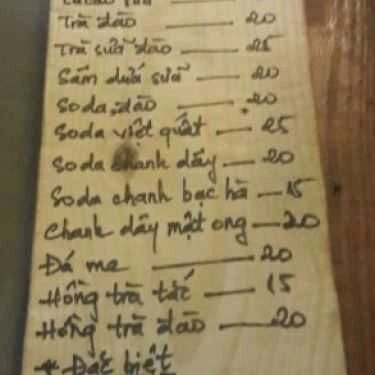 Trà đào — 20
Trà sữa đào — 25
Sâm dứa sữa — 20
Soda đào — 20
Soda việt quất — 25
Soda chanh dây — 20
Soda chanh bạc hà — 15
Chanh dây mật ong — 20
Đá me — 20
Hồng trà tắc — 15
Hồng trà đào — 20
* Đặc biệt